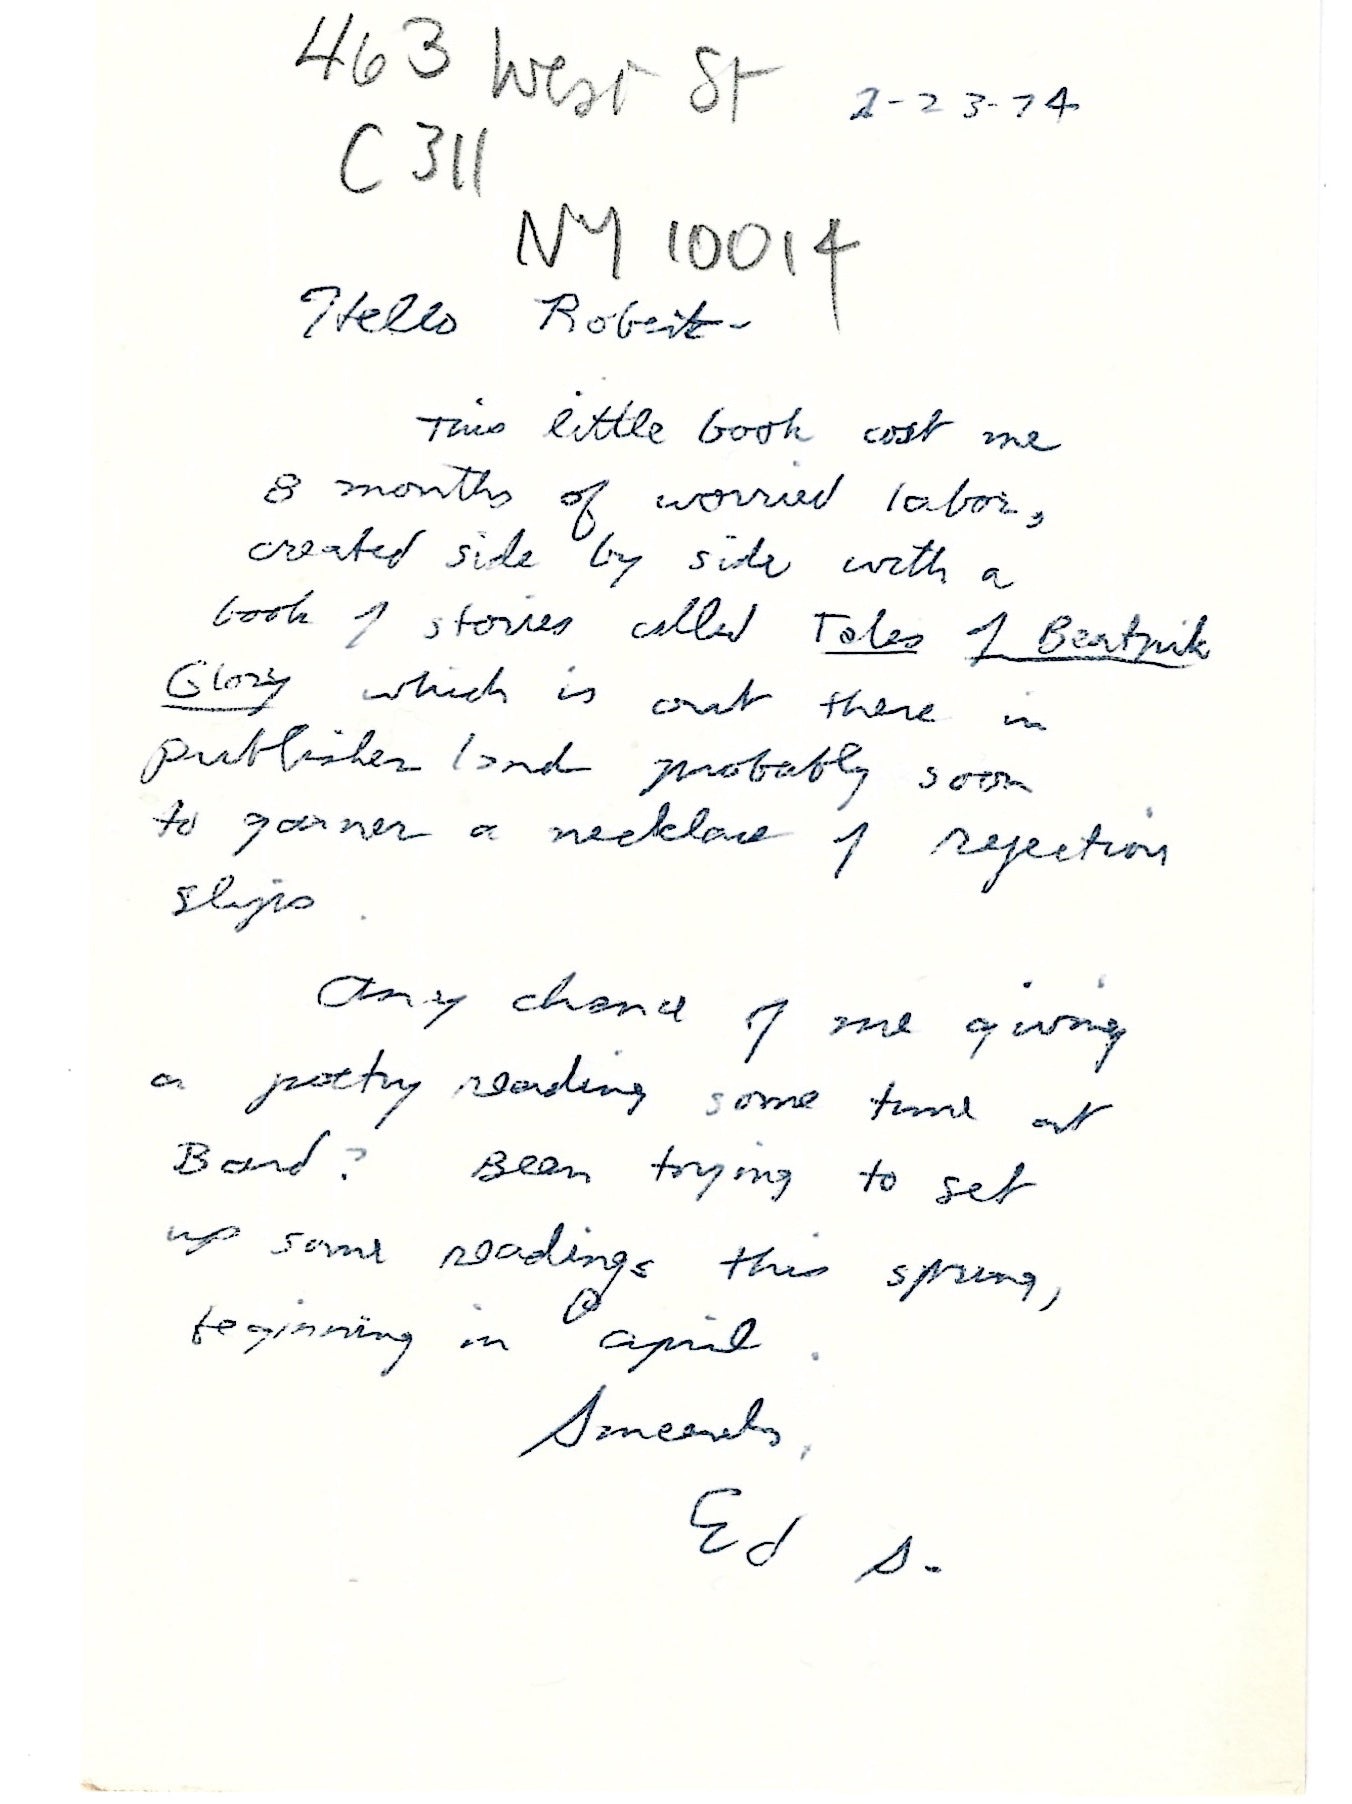 463 West St
2-23-74
C 311
NY 10014
Hello Robert-
This little book cost me
8 months of worried labor,
created side by side with a
book of stories called Tales of Beatnik
Glory which is out there in
publisher land probably soon
to garner a necklace of rejection
slips.
Any chance of me giving
a poetry reading some time at
Bard? Been trying to set
up some readings this spring,
beginning in april.
Sincerely,
Ed S.